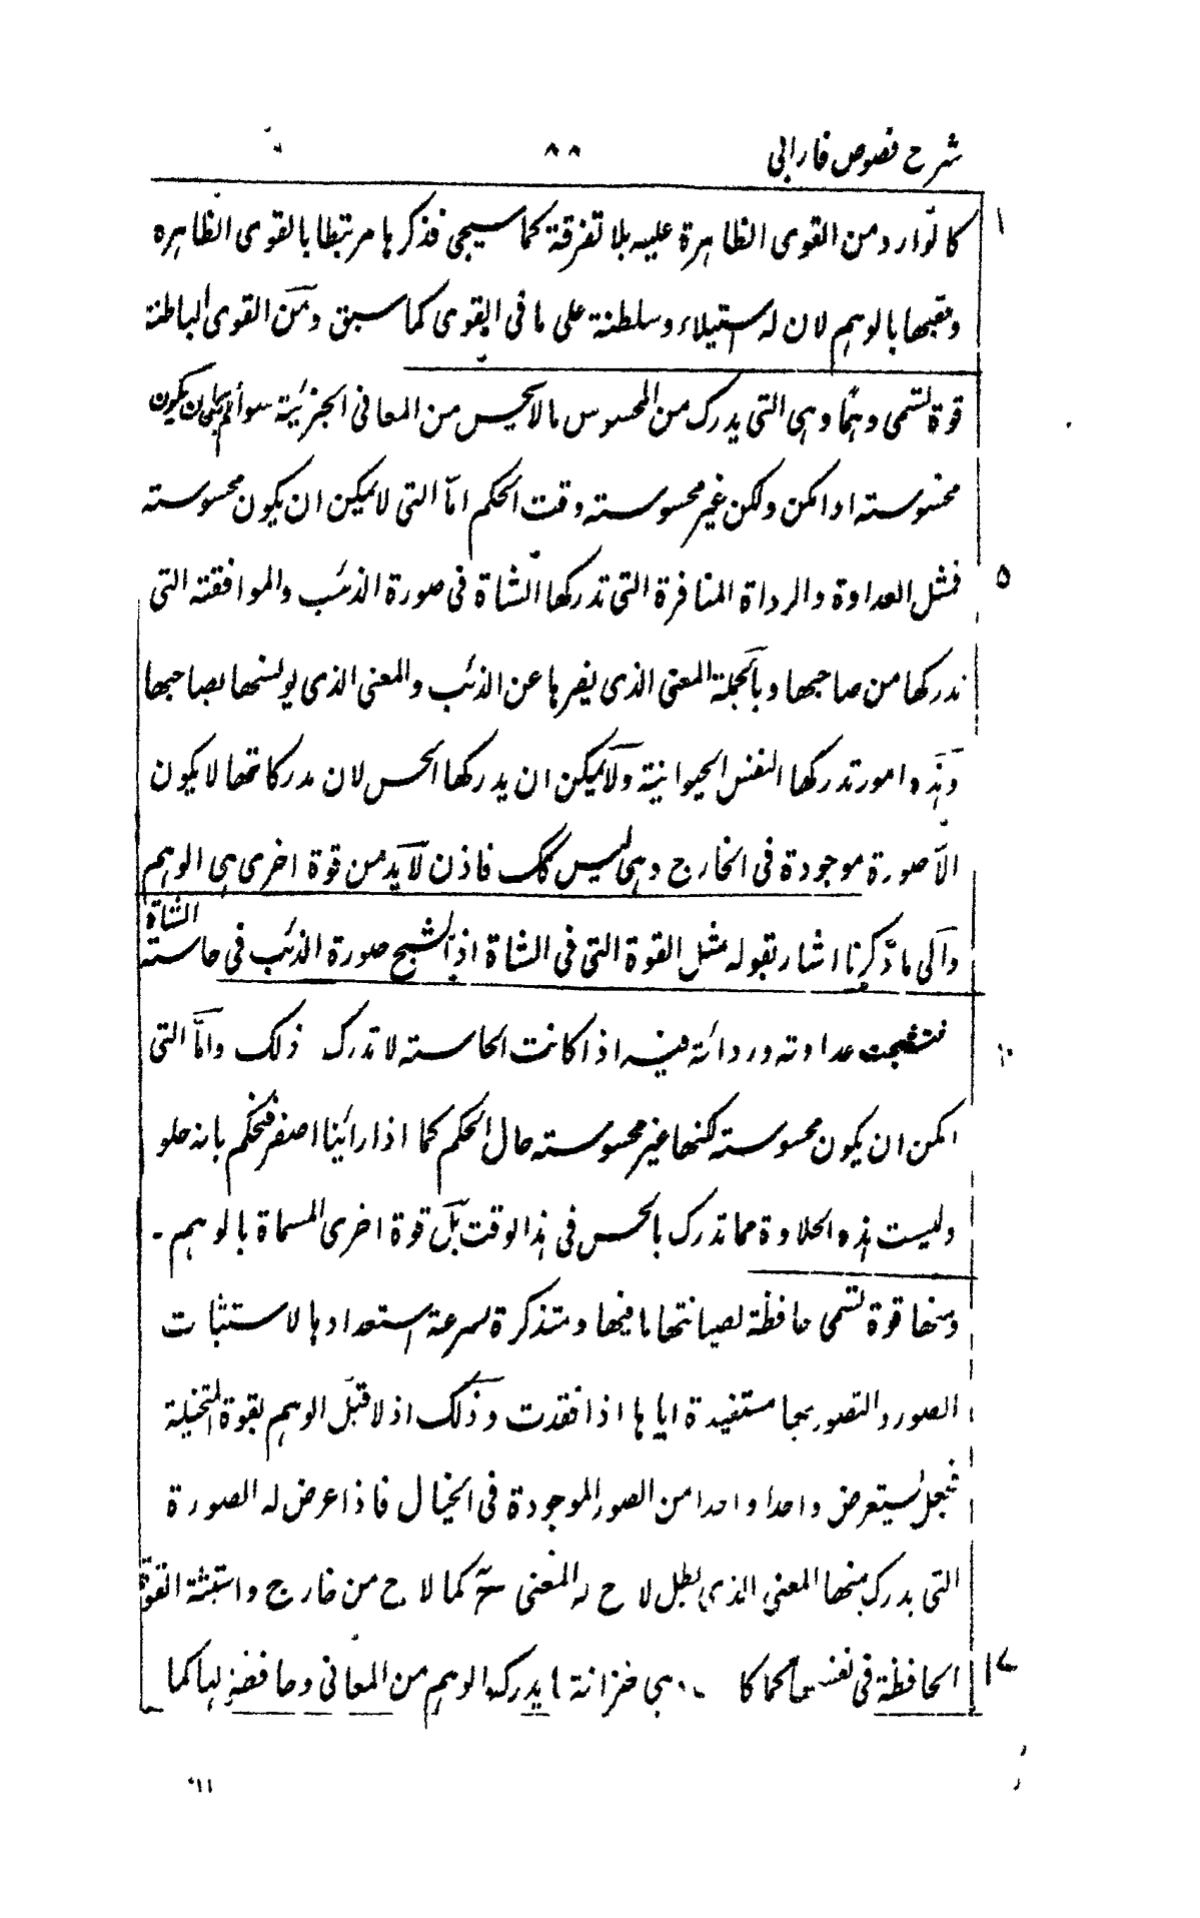 شرح فصوص فارابي ٨٨
١ كالوارد من القوى الظاهرة عليه بلا تفرقة كما سيجى فذكرها مرتبطا بالقوى الظاهره
وعقبها بالوهم لان له استيلاء وسلطنة على ما فى القوى كما سبق ومن القوى الباطنة
قوة تسمى وهمًا وهى التى يدرك من المحسوس ما لا يحس من المعانى الجزئية سواء لم يمكن ان يكون
محسوسته او امكن ولكن غير محسوسته وقت الحكم امّا التى لا يمكن ان يكون محسوسته
٥ فمثل العداوة والرداة المنافرة التى تدركها الشاة فى صورة الذئب والموافقته التى
تدركها من صاحبها وبالجملة المعنى الذى ينفرها عن الذئب والمعنى الذى يونسها بصاحبها
وهذه امور تدركها النفس الحيوانية ولا يمكن ان يدركها الحس لان مدركاتها لا يكون
الّا صورة موجودة فى الخارج وهى ليس كك فاذن لا بد من قوة اخرى هى الوهم
والى ما ذكرنا اشار بقوله مثل القوة التى فى الشاة اذا تشبح صورة الذئب فى حاسته الشاة
١٠ فتشبحت عداوته وردائته فيه اذا كانت الحاسته لا تدرك ذلك وامّا التى
امكن ان يكون محسوسته لكنها غير محسوسته حال الحكم كما اذا رائينا اصفر فنحكم بانه حلو
وليست هذه الحلاوة مما تدرك بالحس فى هذا الوقت بل قوة اخرى المسماة بالوهم -
ومنها قوة تسمى حافظة لصيانتها ما فيها ومتذكرة لسرعة استعدادها لاستثبات
الصور والتصور بها مستفيدة اياها اذا فقدت وذلك اذ لا قبل الوهم بقوة المتخيلة
فجعل يستعرض واحدا واحدا من الصور الموجودة فى الخيال فاذا عرض له الصورة
التى يدرك منها المعنى الذى بطل لاح له المعنى ح كما لاح من خارج واستبثة القوة
١٧ الحافظة فى نفسها كما كا هى خزانة ما يدركه الوهم من المعانى وحافظة لها كما